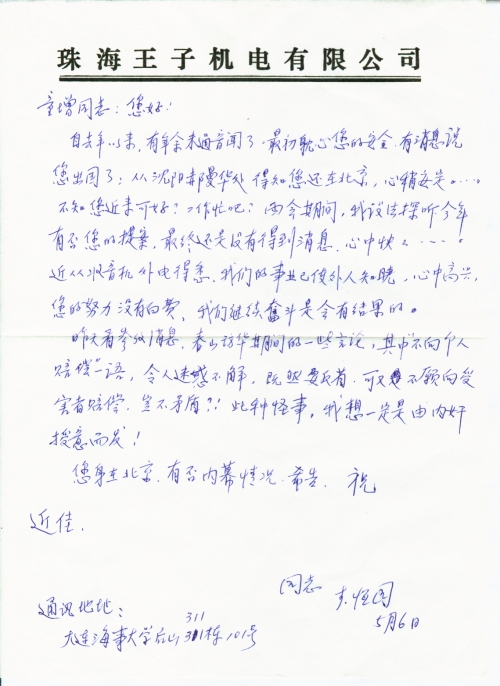 珠海王子机电有限公司
童增同志：您好！
自去年以来，有年余未通音闻了。最初耽心您的安全，有消息说
您出国了；从沈阳郝曼华处得知您还在北京，心稍安定。...
不知您近来可好？工作忙吧？两会期间，我设法探听今年
有否您的提案，最终还是没有得到消息，心中快快....
近从收音机外电得悉，我们的事业已使外人知晓，心中高兴，
您的努力没有白费，我们继续奋斗是会有结果的。
昨天看参改消息，村山访华期间的一些言论，其中不向个人
赔偿一语，令人迷惑不解，既然要反省，可又不愿向受
害者赔偿，岂不矛盾？！此种怪事，我想一定是由内奸
授意而发！
您身在北京，有否内幕情况，希告。祝
近佳。
同志
5月6日
通讯地址：
大连海事大学后山311栋101号
311